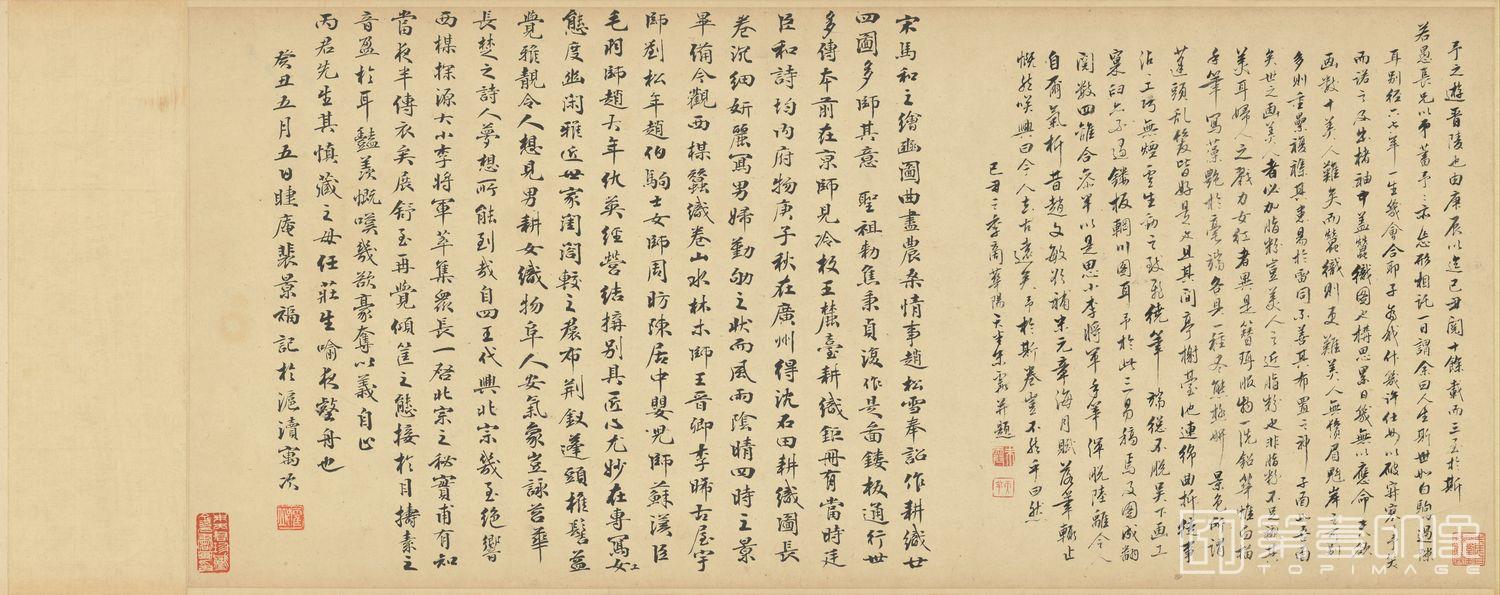 予之遊晋陵也由庚辰以迄己丑閱十餘載而三至於斯
若愚長兄以予忘形相託一日謂余曰人生斯世如白駒過隙
耳别径六七年一生幾會合即子為我作幾許仕女以破寂寞予笑
而諾之及出楮袖中盖蠶織图也構思累日幾無以應命夫欲
画數十美人難矣而蠶織則更難美人無鬚眉魁岸之奇
多則重纍複襍其患易於雷同不善其布置之神
矣世之画美人者必加脂粉豈美人之近脂粉也非脂粉不足
美耳婦人之戮力女红者異是簪珥服物一洗鉛華惟白描
手筆寫藻艷於毫端各具一種態極妍所謂
蓬頭乱髮皆好是也且其間亭榭臺池連綿曲折
沾工巧無煙雲生動之致縱筆端總不脱吳下画工
窠臼只不過鏤板輞川图耳予於此三易稿焉及图成翻
閱数四雖合以是思小李將軍手筆陸離令
自爾氣折昔趙文敏欲補米元章海月賦落筆輒止
慨然嘆興曰今人去古遠矣予於斯卷豈不然乎曰然
己丑三季商華陽天朱并題
宋馬和之繪豳圖曲盡農桑情事趙松雪奉詔作耕織廿
四圖多師其意 聖祖勅焦秉貞復作是圖鏤板通行世
多傳本前在京師見冷枚王麓臺耕織鉅冊有當時廷
臣和詩均内府物庚子秋在廣州得沈石田耕織圖長
卷沉細妍麗寫男婦勤劬之狀而風雨陰晴四時之景
畢備今觀西楳蠶織卷山水林木師王晋卿李晞古屋宇
師劉松年趙伯駒士女師周昉陳居中嬰児師蘇漢臣
毛羽師趙大年仇英經營結搆别具匠心尤妙在專寫女工
態度幽閒雅近世家閨閤較之裠布荆釵蓬頭椎髻益
覺雅靚令人想見男耕女織物阜人安氣象豈詠苕華
長楚之詩人夢想所能到哉自四王代興北宗幾至絶響
西楳探源大小李將軍萃集衆長一啓北宗之秘實甫有知
當夜半傳衣矣展舒至再覺傾筐之態接於目擣素之
音盈於耳豔羨慨嘆幾欲豪奪以義自止
丙君先生其慎藏之毋任莊生喻夜壑舟也
癸丑五月五日睫庵裴景福記於滬瀆寓次
TOPIMAGE